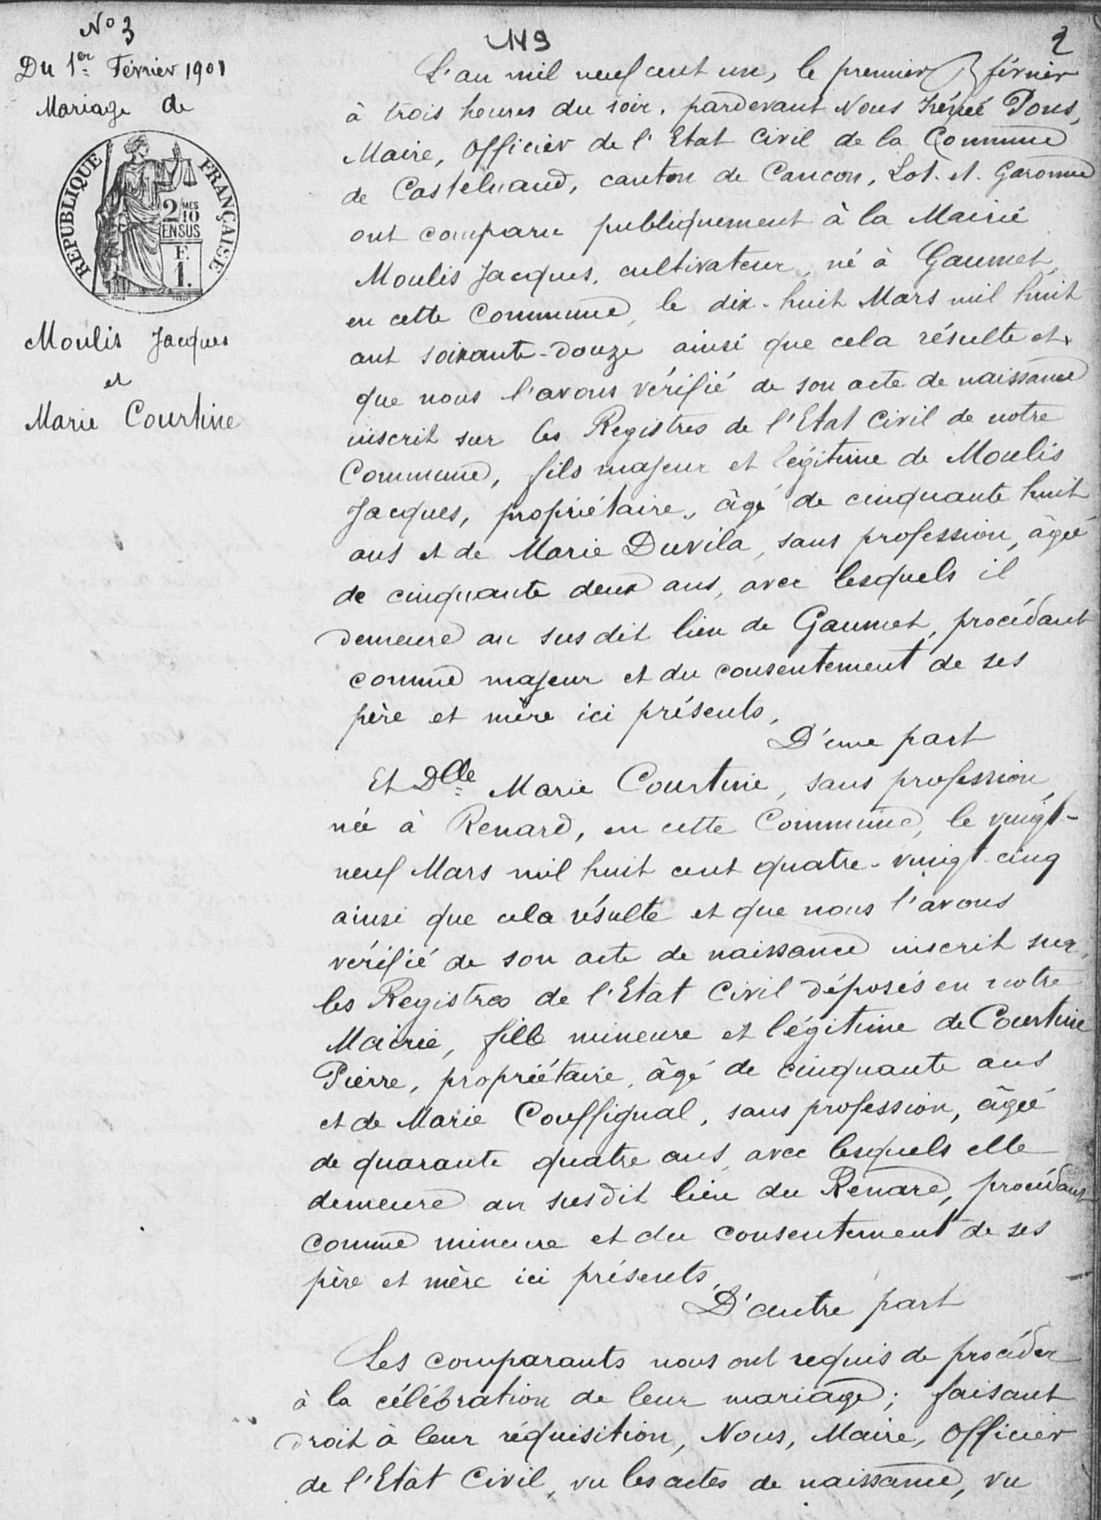 N° 3
Du 1er Février 1901
Mariage de
REPUBLIQUE FRANÇAISE
2 MES
10
EN SUS
F.
1.
Moulis Jacques
et
Marie Courtine
149
2
L'an mil neuf cent un, le premier février
à trois heures du soir, pardevant Nous Irénée Pons,
Maire, Officier de l'Etat Civil de la Commune
de Castelnaud, canton de Cancon, Lot-et-Garonne
ont comparu publiquement à la Mairie
Moulis Jacques, cultivateur, né à Gaumet,
en cette Commune, le dix-huit Mars mil huit
cent soixante-douze ainsi que cela résulte et
que nous l'avons vérifié de son acte de naissance
inscrit sur les Registres de l'Etat Civil de notre
Commune, fils majeur et légitime de Moulis
Jacques, propriétaire, âgé de cinquante huit
ans et de Marie Duvila, sans profession, âgée
de cinquante deux ans, avec lesquels il
demeure au susdit lieu de Gaumet, procédant
comme majeur et du consentement de ses
père et mère ici présents,
D'une part
Et Dlle Marie Courtine, sans profession,
née à Renard, en cette Commune, le vingt-
neuf Mars mil huit cent quatre-vingt-cinq
ainsi que cela résulte et que nous l'avons
vérifié de son acte de naissance inscrit sur
les Registres de l'Etat Civil déposés en notre
Mairie, fille mineure et légitime de Courtine
Pierre, propriétaire, âgé de cinquante ans
et de Marie Couffignal, sans profession, âgée
de quarante quatre ans, avec lesquels elle
demeure au susdit lieu du Renard, procédant
comme mineure et du consentement de ses
père et mère ici présents,
D'autre part
Les comparants nous ont requis de procéder
à la célébration de leur mariage; faisant
droit à leur réquisition, Nous, Maire, Officier
de l'Etat Civil, vu les actes de naissance, vu